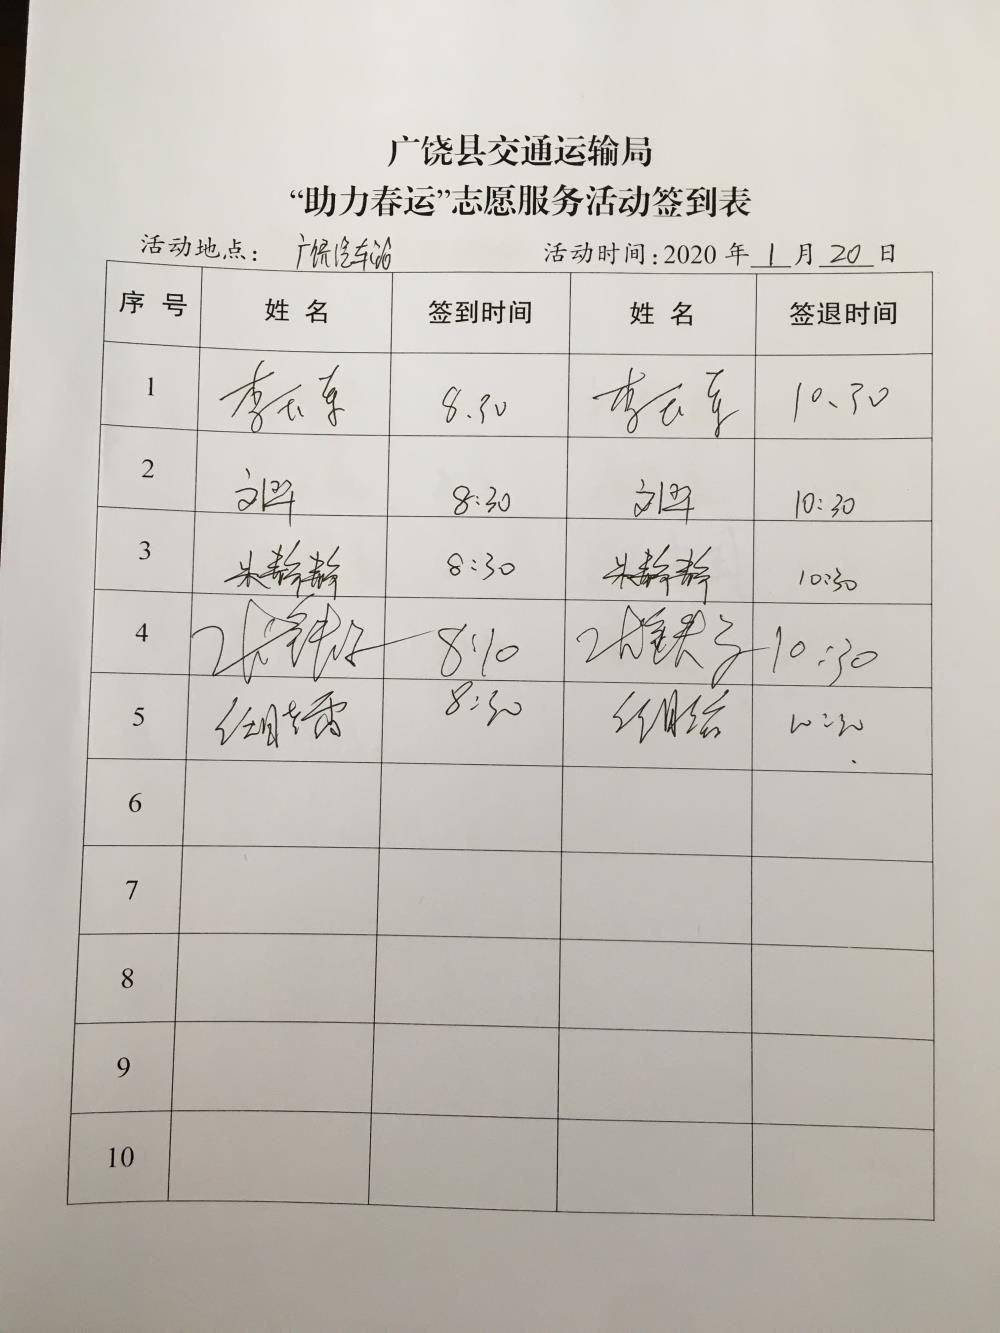 广饶县交通运输局
“助力春运”志愿服务活动签到表
活动地点： 广饶汽车站 活动时间:2020 年 1 月 20 日
序 号 姓 名 签到时间 姓 名 签退时间
1 8.30 10、30
2 8:30 10:30
3 朱静静 8:30 朱静静 10:30
4 8:10 10:30
5 8:30 10:30
6
7
8
9
10